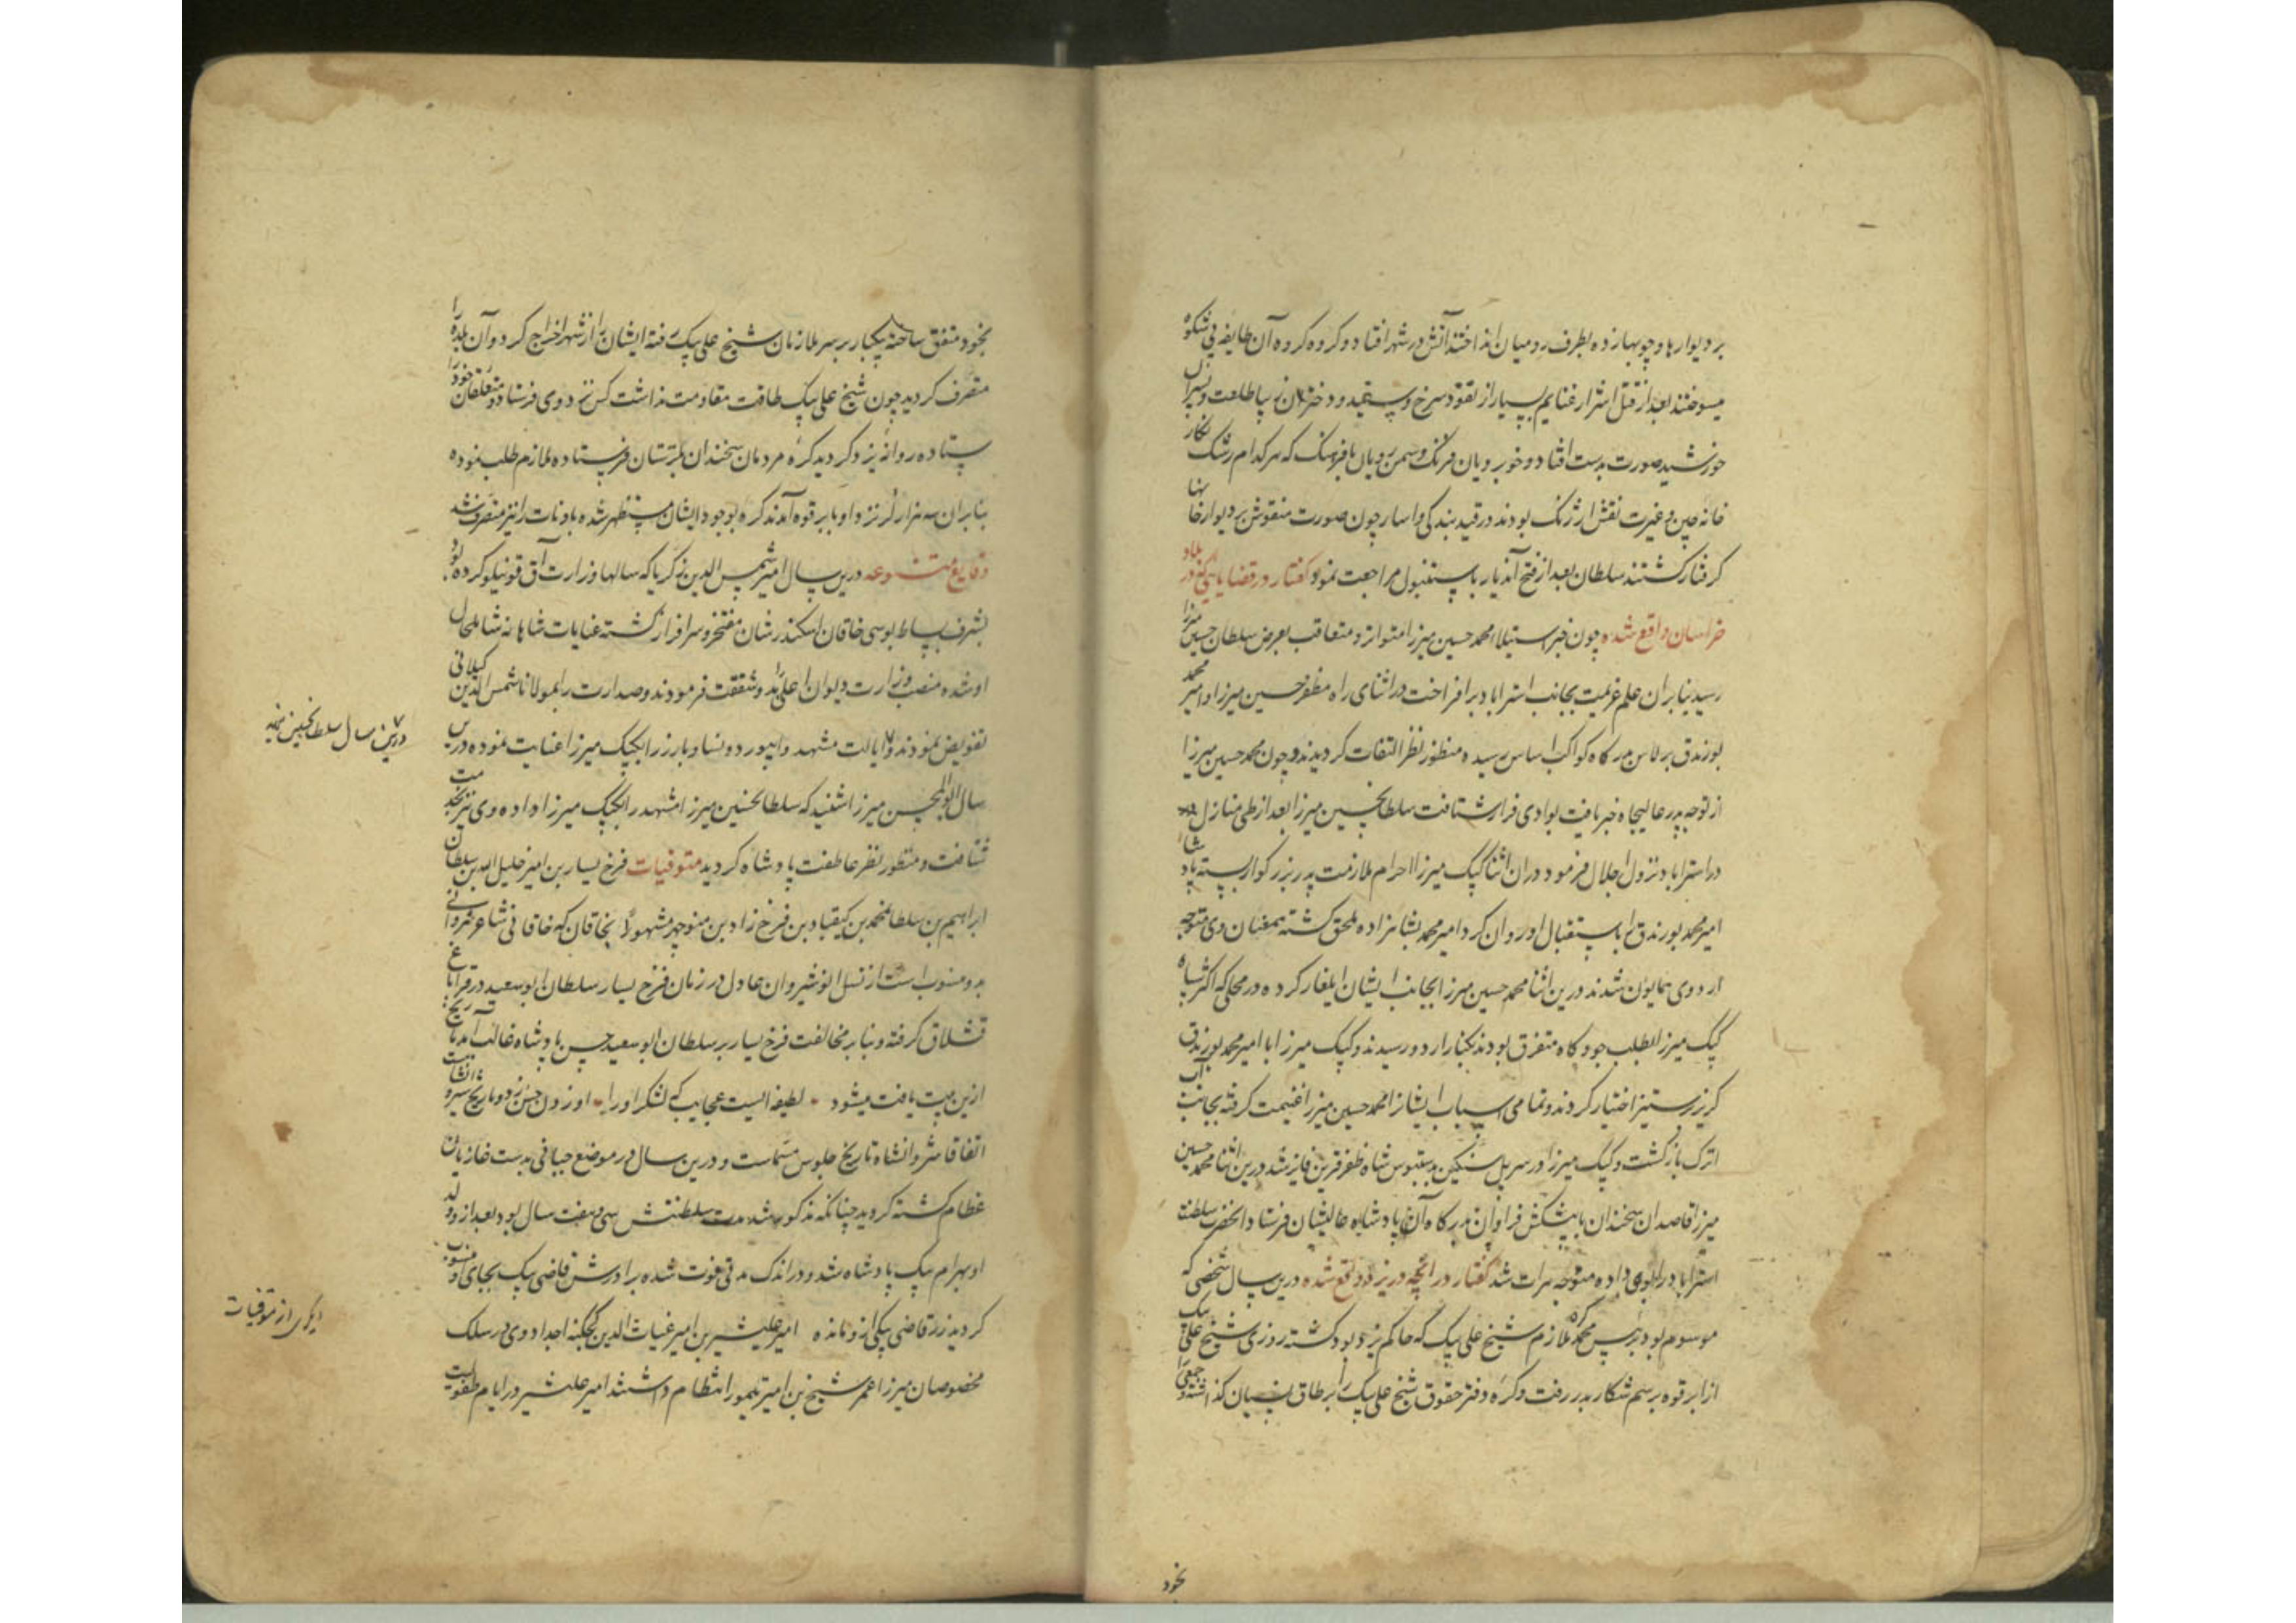 بر دیوارها و چوبها زده بطرف رومیان انداختند آتش در شهر افتاد و کروه کروه آن طایفه بی شکوه
میسوختند بعد از قتل اشرار غنایم بسیار از نقود سرخ و سپید و دختران زیبا طلعت و پسران
خورشید صورت بدست افتاد و خوبرویان فرنک و سمن رویان با فرهنک که هر کدام رشک نکار
خانه چین و غیرت نقش ارژنک بودند در قید بندکی و اسار چون صورت منقوش بر دیوار خانها
کرفتار کشتند سلطان بعد از فتح آندیار باستنبول مراجعت نمود کفتار در قضایایی که در بلاد
خراسان واقع شده چون خبر استیلا محمد حسین میرزا متواتر و متعاقب بعرض سلطان حسین میرزا
رسید بنابران علم عزیمت بجانب استراباد بر افراخت در اثنای راه مظفر حسین میرزا و امیر محمد
بورندق برلاس بدرکاه کواکب اساس رسیده منظور نظر التفات کردیدند و چون محمد حسین میرزا
از توجه پدر عالیجاه خبر یافت بوادی فرار شتافت سلطان حسین میرزا بعد از طی منازل
در استراباد نزول اجلال فرمود در ان اثنا کپک میرزا احرام ملازمت پدر بزرکوار بسته پادشاه
امیر محمد بورندق را باستقبال او روان کرد امیر محمد بشاهزاده ملحق کشته بهمعنان وی متوجه
اردوی همایون شدند درین اثنا محمد حسین میرزا بجانب ایشان ایلغار کرده در محلی که اکثر سپاه
کپک میرزا بطلب جو و کاه متفرق بودند بکنار اردو رسیدند و کپک میرزا با امیر محمد بورندق
کریز بر ستیز اختیار کردند و تمامی اسباب ایشانرا محمد حسین میرزا غنیمت کرفته بجانب آب
اترک بازکشت و کپک میرزا در سر پل سنکین بدستبوس شاه ظفر قرین فایز شد درین اثنا محمد حسین
میرزا قاصدان سخندان با پیشکش فراوان بدرکاه آن پادشاه عالیشان فرستاد و انحضرت سلطنت
استراباد را بوی داده متوجه هرات شد کفتار در انچه در یزد واقع شده درین سال شخصی که
موسوم بود برئیس محمد کره ملازم شیخ علی بیک که حاکم یزد بود کشته روزی شیخ علی بیک
از ابرقوه برسم شکار بدر رفت و کره دفتر حقوق شیخ علی بیک را بر طاق نسیان کذاشته جمعی را
بخود
بخود متفق ساخته بیکبار بر سر ملازمان شیخ علی بیک رفته ایشان را از شهر اخراج کرد و آن بلده را
متصرف کردید چون شیخ علی بیک طاقت مقاومت نداشت کس نزد وی فرستاد و متعلقان خود را
ستاده روانه یزد کردید کره مردمان سخندان بلرستان فرستاده ملازم طلب نموده
بنابران سه هزار لر نزد او بابرقوه آمدند کره بوجود ایشان مستظهر شده بادنات را نیز متصرف شد
وقایع متنوعه درین سال امیر شمس الدین زکریا که سالها وزارت آق قوینلو کرده بود
بشرف بساط بوسی خاقان اسکندر شان مفتخر و سرافراز کشته عنایات شاهانه شامل حال
او شده منصب وزارت دیوان اعلی بدو شفقت فرمودند و صدارت را بمولانا شمس الدین کیلانی
تفویض نمودند و ایالت مشهد و ابیورد و نسا و باورد را بکپک میرزا عنایت نموده درین
سال ابوالمحسن میرزا شنید که سلطان حسین میرزا مشهد را بکپک میرزا داده وی نیز بخدمت
شتافت و منظور نظر عاطفت پادشاه کردید متوفیات فرخ یسار بن امیر خلیل الله بن سلطان
ابراهیم بن سلطان محمد بن کیقباد بن فرخ زاد بن منوچهر مشهور بخاقان که خاقانی شاعر شروانی
بدو منسوب است از نسل انوشیروان عادل در زمان فرخ یسار سلطان ابوسعید در قراباغ
قشلاق کرفته و بنا بر مخالفت فرخ یسار بر سلطان ابوسعید حسن پادشاه غالب آمد تاریخ
ازین بیت یافت میشود لطیفه ایست عجایب که لشکر او را اوزون حسن زد و تاریخ شیروانشاهیست
اتفاقا شروانشاه تاریخ جلوس شماست و درین سال در موضع جبانی بدست غازیان
عظام کشته کردید چنانکه مذکور شد مدت سلطنتش سی و هفت سال بود بعد از او ولد
او بهرام بیک پادشاه شد و در اندک مدتی فوت شده برادرش قاضی بیک بجای او منسوب
کردید زر قاضی بیکی از و مانده امیر علیشیر بن امیر غیاث الدین کجکنه اجداد وی در سلک
مخصوصان میرزا عمر شیخ بن امیر تیمور انتظام داشتند امیر علیشیر در ایام طفولیت
درین سال سلطان حسین
از متوفیات